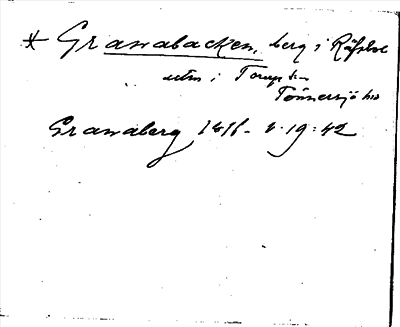 * Granabacken, berg i Räfsbo
utm i Torup sn
Tönnersjö hd
Granaberg 1811- v. 19:42